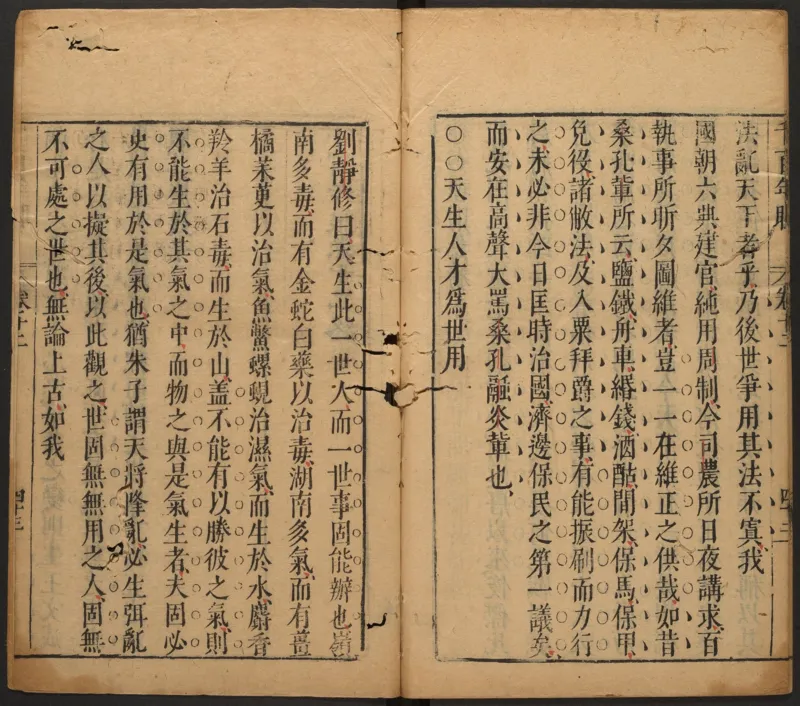 千百年眼 卷十二 四十二
法亂天下者乎乃後世爭用其法不寘我
國朝六典建官純用周制今司農所日夜講求百
執事所昕夕圖維者豈一一在維正之供哉如昔
桑孔輩所云鹽鐵舟車緡錢酒酤間架保馬保甲
免役諸敝法及入粟拜爵之事有能振刷而力行
之未必非今日匡時治國濟邊保民之第一議矣
而安在高聲大罵桑孔融炎輩也
○○天生人才爲世用
劉靜修曰天生此一世人而一世事固能辦也嶺
南多毒而有金蛇白藥以治毒湖南多氣而有薑
橘茱萸以治氣魚鱉螺蜆治濕氣而生於水麝香
羚羊治石毒而生於山蓋不能有以勝彼之氣則
不能生於其氣之中而物之與是氣生者夫固必
史有用於是氣也猶朱子謂天將降亂必生弭亂
之人以擬其後以此觀之世固無無用之人固無
不可處之世也無論上古如我
卷十二 四十三